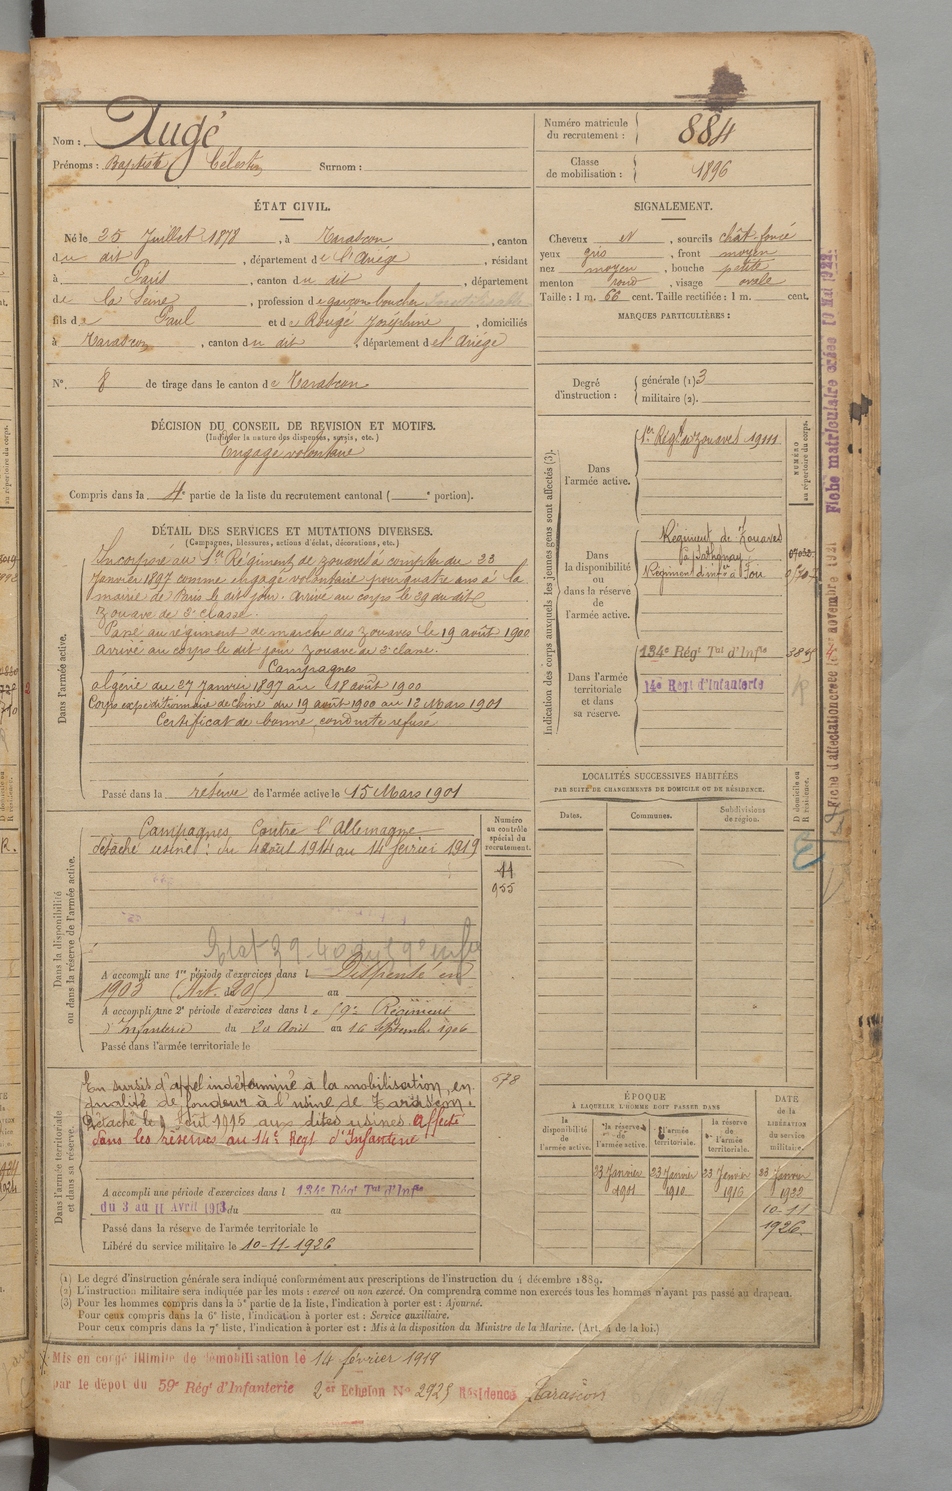 Nom : Augé
Prénoms : Baptiste Célestin Surnom :
Numéro matricule du recrutement : 884
Classe de mobilisation : 1896
ÉTAT CIVIL.
Né le 25 Juillet 1878, à Tarascon, canton
du dit, département de l'Ariège, résidant
à Paris, canton du dit, département
de la Seine, profession de garçon boucher
fils de Paul et de Rougé Joséphine, domiciliés
à Tarascon, canton du dit, département de l'Ariège
N°. 8 de tirage dans le canton de Tarascon
DÉCISION DU CONSEIL DE REVISION ET MOTIFS.
(Indiquer la nature des dispenses, sursis, etc.)
Engagé volontaire
Compris dans la 4e partie de la liste du recrutement cantonal ( e portion).
SIGNALEMENT.
Cheveux N, sourcils chât-foncé
yeux gris, front moyen
nez moyen, bouche petite
menton rond, visage ovale
Taille : 1 m. 66 cent. Taille rectifiée : 1 m. cent.
MARQUES PARTICULIÈRES :
Degré d'instruction : générale (1) 3
militaire (2).
DÉTAIL DES SERVICES ET MUTATIONS DIVERSES.
(Campagnes, blessures, actions d'éclat, décorations, etc.)
Dans l'armée active.
Incorporé au 1er Régiment de zouaves à compter du 23
Janvier 1897 comme engagé volontaire pour quatre ans à la
mairie de Paris le dit jour. Arrivé au corps le 29 du dit
zouave de 2e classe.
Passé au régiment de marche des zouaves le 19 août 1900
arrivé au corps le dit jour zouave de 2e classe.
Campagnes
Algérie du 27 Janvier 1897 au 18 août 1900
Corps expéditionnaire de Chine du 19 août 1900 au 12 Mars 1901
Certificat de bonne conduite refusé
Passé dans la réserve de l'armée active le 15 Mars 1901
Indication des corps auxquels les jeunes gens sont affectés (3).
NUMÉRO au répertoire du corps.
Dans l'armée active.
1er Régt de Zouaves 19111
Dans la disponibilité ou dans la réserve de l'armée active.
Régiment de Zouaves
Régiment d'infie à Foix
Dans l'armée territoriale et dans sa réserve.
134e Régt Tal d'Infie
14e Regt d'Infanterie
LOCALITÉS SUCCESSIVES HABITÉES
PAR SUITE DE CHANGEMENTS DE DOMICILE OU DE RÉSIDENCE.
Dates. Communes. Subdivisions de région.
D domicile ou R résidence.
Dans la disponibilité ou dans la réserve de l'armée active.
Numéro au contrôle spécial du recrutement.
Campagnes Contre l'Allemagne
détaché usine : du 4 août 1914 au 14 février 1919
11
955
A accompli une 1re période d'exercices dans l Dispensé en
1903 (Art. de 205) au
A accompli une 2e période d'exercices dans le 59e Régiment
d'Infanterie du 20 Août au 16 Septembre 1906
Passé dans l'armée territoriale le
Dans l'armée territoriale et dans sa réserve.
678
En sursis d'appel indéterminé à la mobilisation, en
qualité de fondeur à l'usine de Tarascon.
Détaché le Août 1915 aux dites usines. Affecté
dans les réserves au 14e Regt d'Infanterie
A accompli une période d'exercices dans l 134e Régt Tal d'Infie
du 3 au 11 Avril 1913 du au
Passé dans la réserve de l'armée territoriale le
Libéré du service militaire le 10-11-1926
ÉPOQUE
À LAQUELLE L'HOMME DOIT PASSER DANS
la disponibilité de l'armée active. la réserve de l'armée active. l'armée territoriale. la réserve de l'armée territoriale.
DATE de la LIBÉRATION du service militaire.
23 Janvier 1901 23 Janvier 1910 23 Janvier 1916 23 Janvier 1922
10-11
1926
(1) Le degré d'instruction générale sera indiqué conformément aux prescriptions de l'instruction du 4 décembre 1889.
(2) L'instruction militaire sera indiquée par les mots : exercé ou non exercé. On comprendra comme non exercés tous les hommes n'ayant pas passé au drapeau.
(3) Pour les hommes compris dans la 5e partie de la liste, l'indication à porter est : Ajourné.
Pour ceux compris dans la 6e liste, l'indication à porter est : Service auxiliaire.
Pour ceux compris dans la 7e liste, l'indication à porter est : Mis à la disposition du Ministre de la Marine. (Art. 4 de la loi.)
Mis en congé illimité de démobilisation le 14 février 1919
par le dépôt du 59e Régt d'Infanterie 2er Echelon No 2925 Résidence Tarascon
Fiche d'affectation créée le 4 novembre 1921 Fiche matriculaire créée 10 Mai 1922